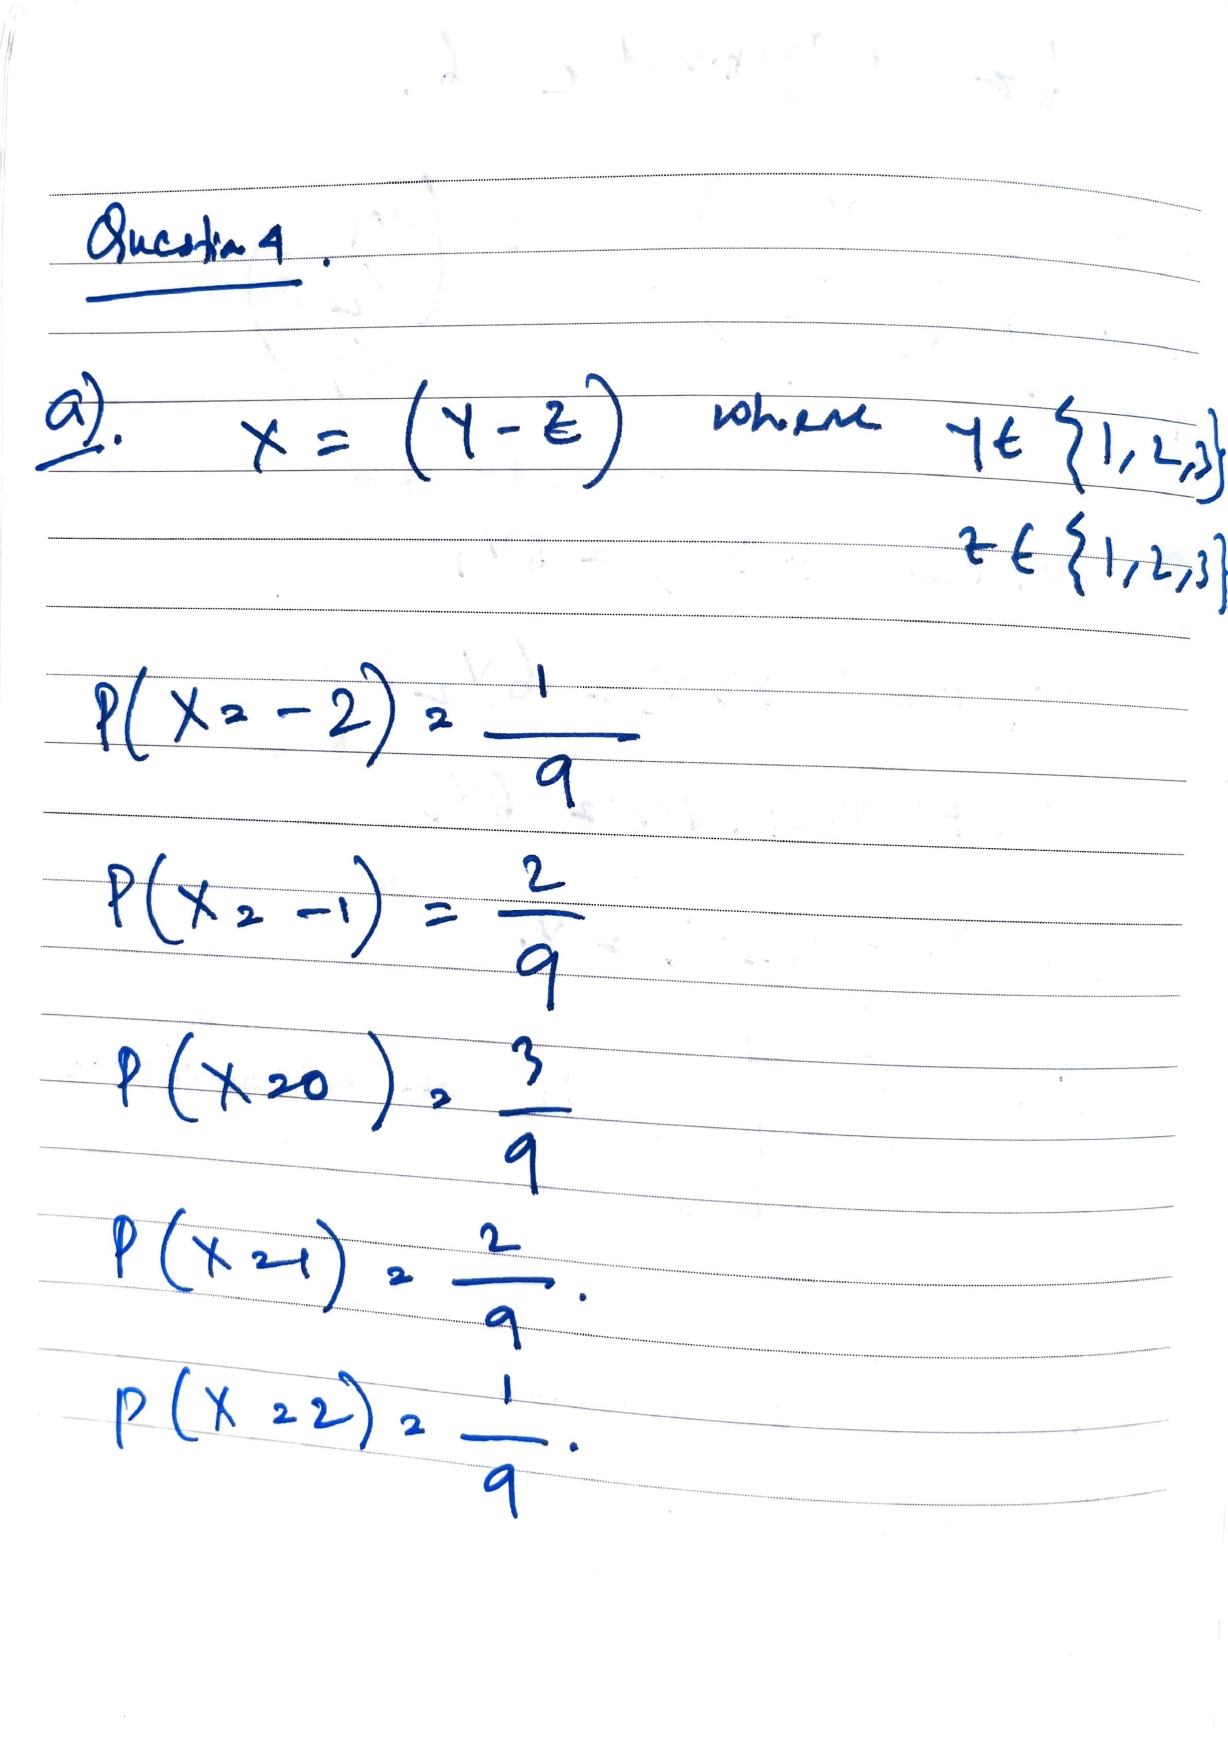 Question 4.
a). X = (Y - Z) where Y ∈ {1, 2, 3}
Z ∈ {1, 2, 3}
P(X = -2) = 1/9
P(X = -1) = 2/9
P(X = 0) = 3/9
P(X = 1) = 2/9.
P(X = 2) = 1/9.